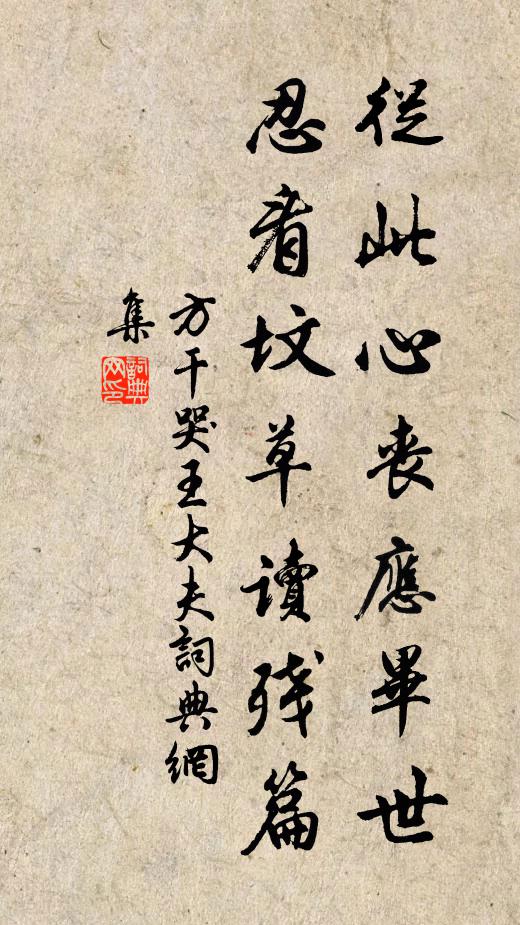 從此心喪應畢世
忍看坟草讀殘篇
方干哭王大夫詞典網
集
詞典網印